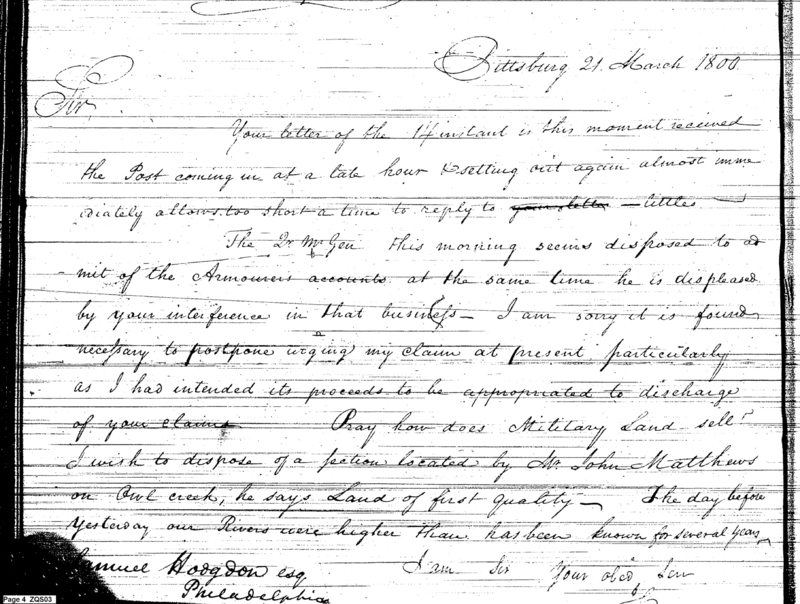 Pittsburg 21. March 1800
Sir,
Your letter of the 14 instant is this moment received
the Post coming in at a late hour & setting out again almost imme
diately allows too short a time to reply to your letter — letters —
The Qr Mr Gen this morning seems disposed to ad
mit of the Armourers accounts at the same time he is displeased
by your interference in that business — I am sorry it is found
necessary to postpone urging my claim at present, particularly
as I had intended its proceeds to be appropriated to discharge
of your claims Pray how does Military Land sell?
I wish to dispose of a section located by Mr. John Matthews
on Owl creek, he says Land of first quality — The day before
yesterday our Rivers were higher than has been known for several years,
Samuel Hodgdon esq. I am Sir Your obed Ser
Philadelphia
Page 4 ZQS03